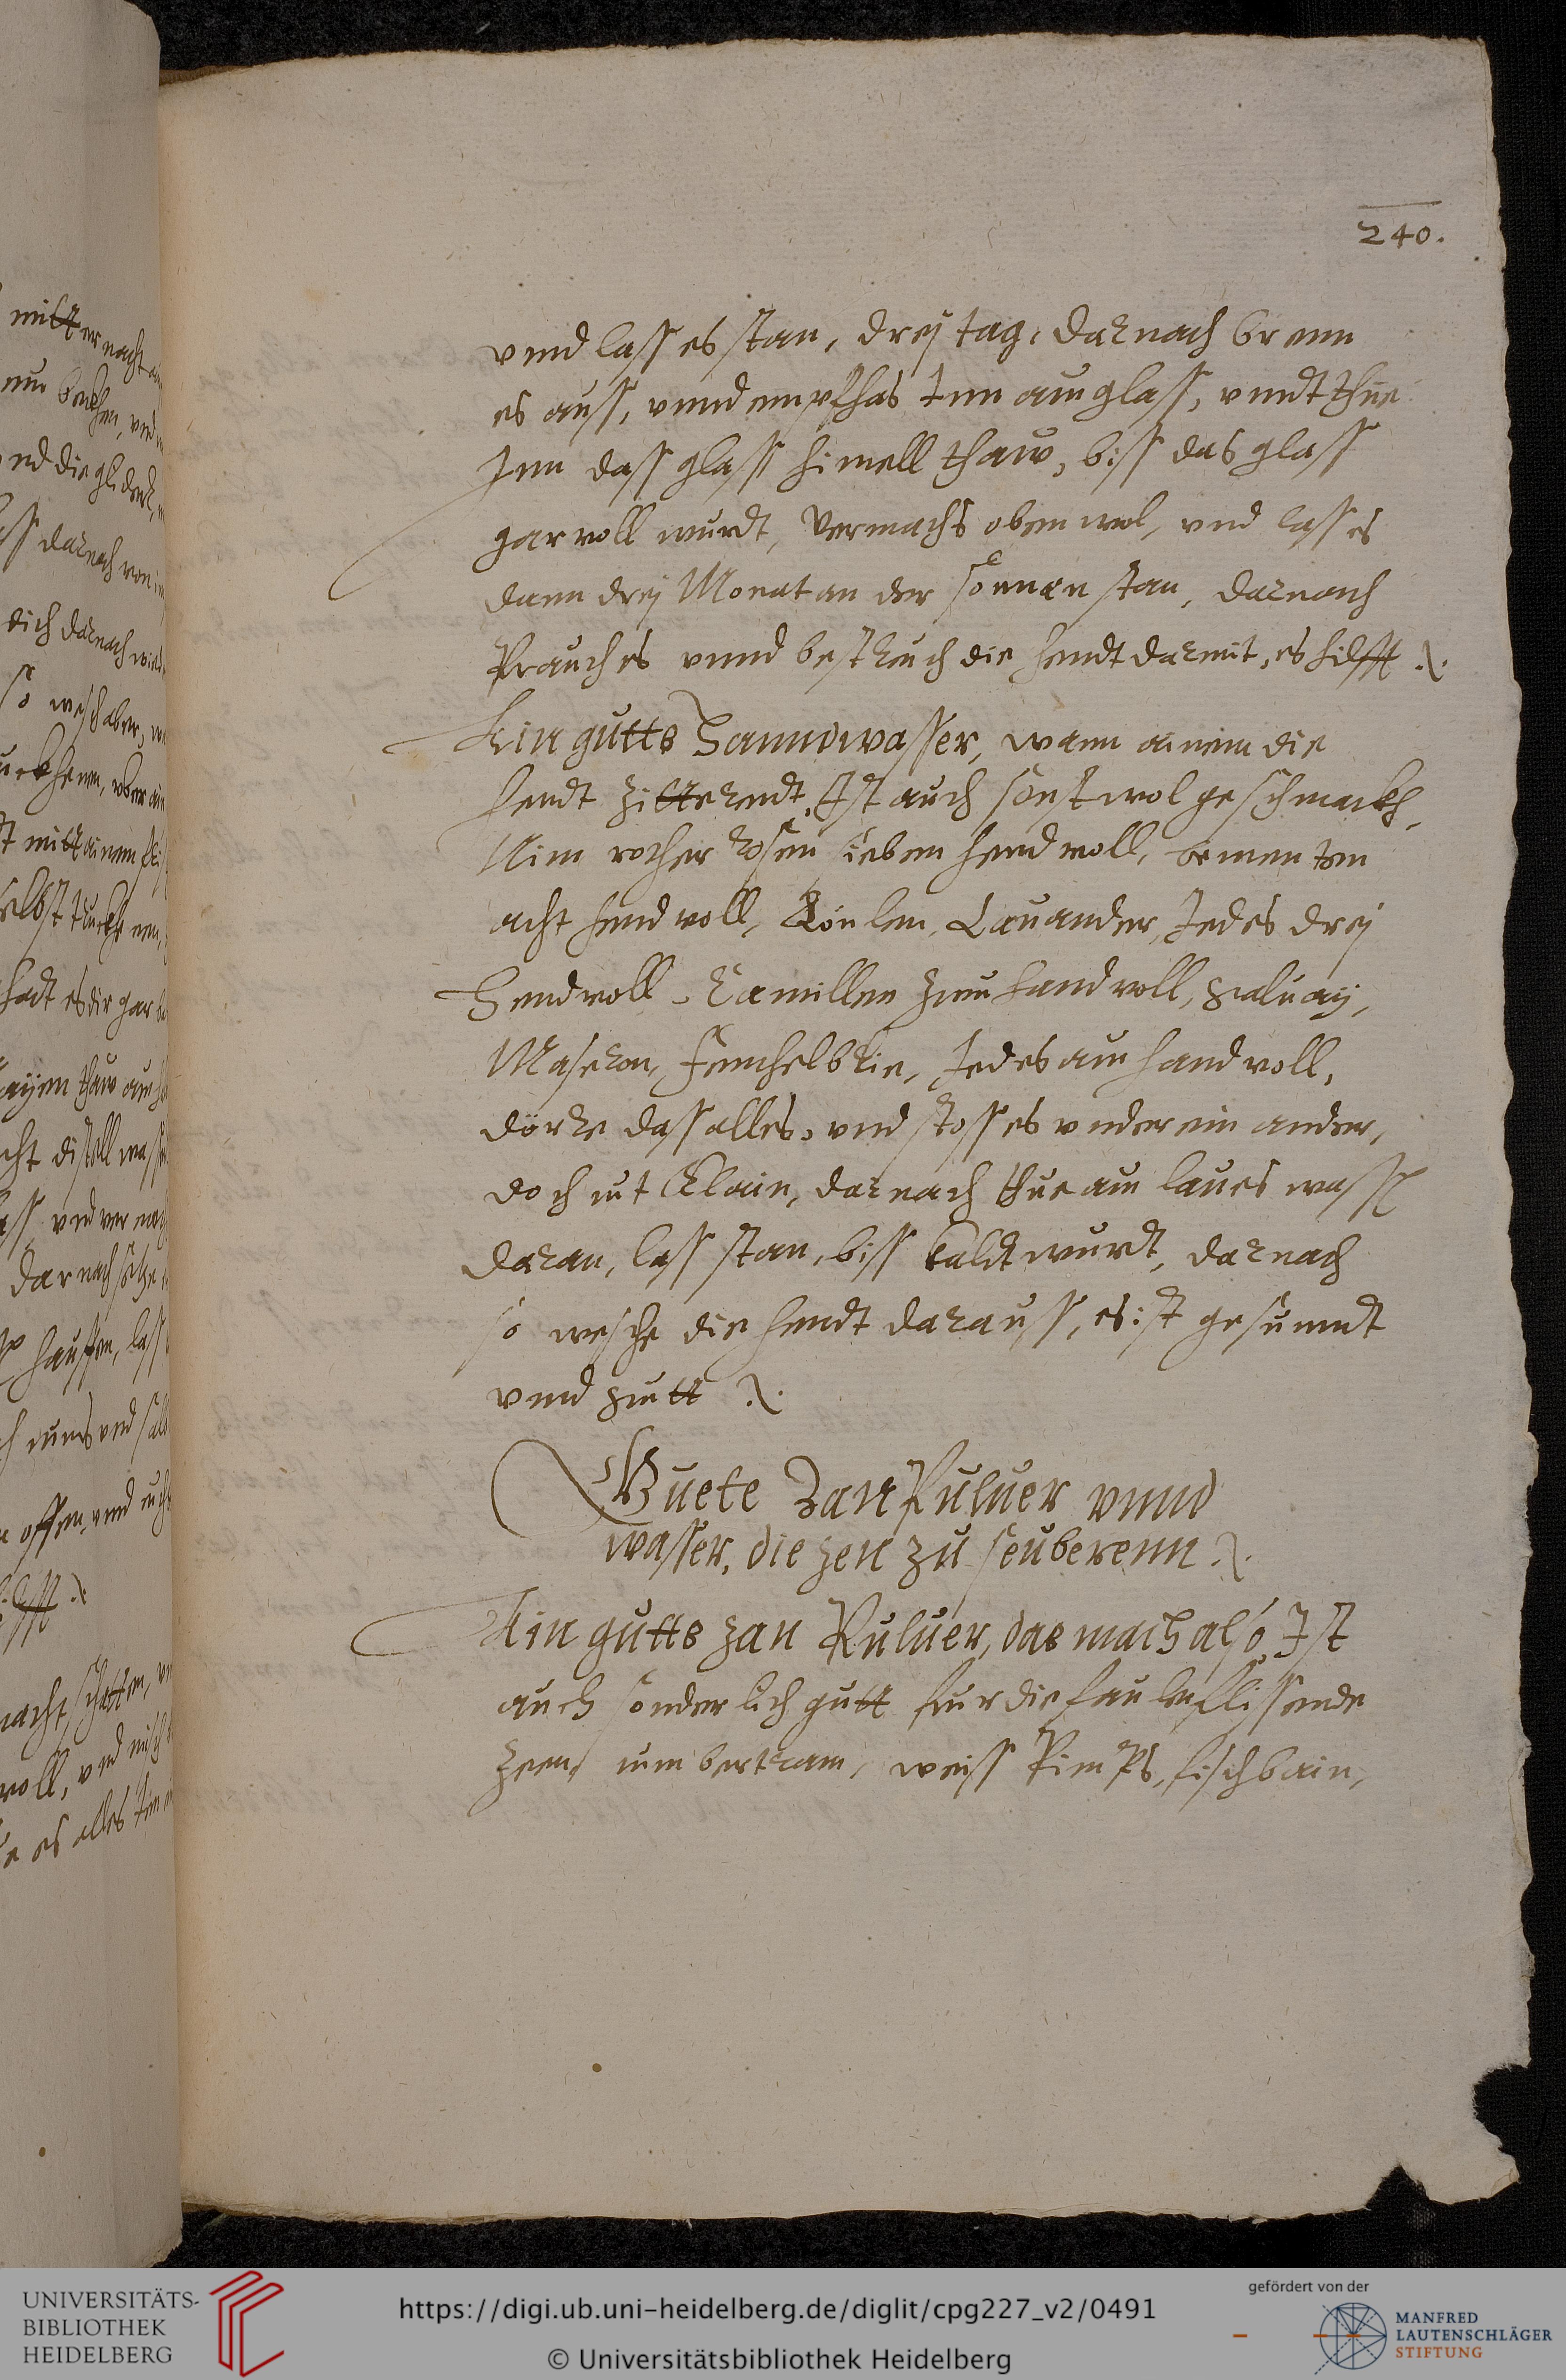 240.
vnnd lass es stan, dreÿ tag, darnach brenn
es auss, vnnd empfhas Inn ain glass, vnndt thue
Inn dass glass himell thaw, biss das glass
gar voll wurdt, Vermachs oben wol, vnd lass es
dann dreÿ Monat an der sonnen stan, darnach
Prauch es vnnd bestreuch die hendt darmit, es hilfft ./.
Ain gutts Hanndwasser, wann ainem die
hendt zitterendt, Ist auch sonst wol geschmackh,
Nim rother rosen siben hend voll,
acht hend voll, Lauander, Jedes dreÿ
Hend voll, Camillen zwu hand voll, Saluaÿ,
Maseron, Fenchelblie, Jedes ain hand voll,
dörre dass alles, vnd stoss es vnder ein ander,
doch nit Clain, darnach thue ain laues wasser
daran, lass stan, biss kaldt wurdt, darnach
so wesche die hendt darauss, es ist gesunndt
vnnd guett ./.
Guete Zan Puluer vnnd
wasser, die zen zu seuberenn ./.
Ain gutts zan Puluer, das mach also, Ist
auch sonderlich gutt fur die faule flissende
zeen, nim bertram, weiss Pimps, fischbain,
UNIVERSITÄTS-
BIBLIOTHEK
HEIDELBERG
https://digi.ub.uni-heidelberg.de/diglit/cpg227_v2/0491
© Universitätsbibliothek Heidelberg
gefördert von der
MANFRED
LAUTENSCHLÄGER
STIFTUNG